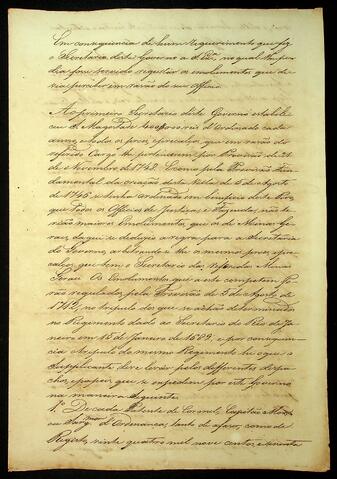 Em consequencia de hum requerimento que fez
o Secretario deste Governo a V. Exª, no qual lhe pe
dia fosse servido regular os emolumentos que de
via perceber em razão do seu officio.
Ao primeiro Secretario deste Governo estabele
ceu S. Magestade 400$000 reis d'Ordenado cada
anno, e todos os proes, e precalços, que em razão do
referido Cargo lhe pertencerem por Provisão de 21
de Novembro de 1748. E como pela Provisão Fun
damental da creação desta de 5 de Agosto
de 1746 se tenha ordenado em beneficio deste Povo,
que todos os Officiaes de Justiça, e Fazenda, não te
rião maiores Emolumentos, que os de Minas Ge
raes, daqui se deduzio a regra para a Secretaria
do Governo, arbitrando-se lhe os mesmos proes, e pre
calços, que tem o Secretario das referidas Minas
Geraes. Os Emolumentos que a este competem fo
rão regulados pela Provisão de 5 de Agosto de
1742, no tripulo dos que se achão determinados
no Regimento dado ao Secretario do Rio de Ja
neiro em 15 de Janeiro de 1689, e por consequen
cia o tripulo do mesmo Regimento he o que o
Supplicante deve levar pelos differentes despa
chos, e papeis, que se expedem por este Governo
na maneira seguinte.
1º De cada Patente de Coronel, Capitão Mór,
ou Sargto. d'Ordenança, tanto de feitio, como de
Registo, vinte quatro mil nove centos, e secenta